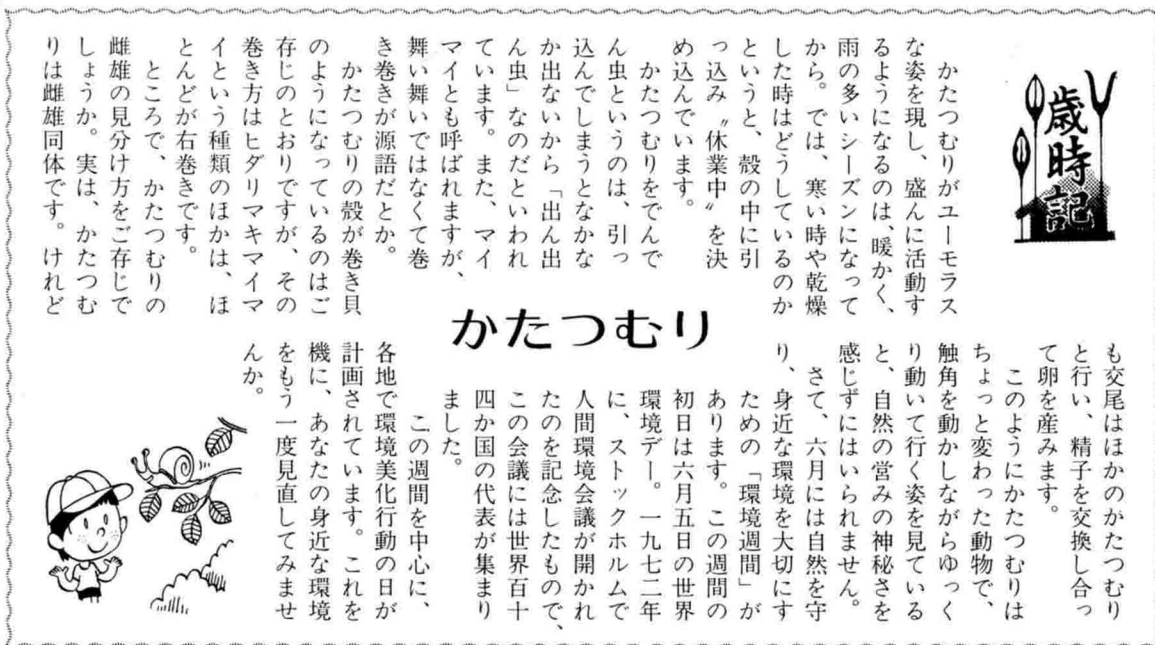 歳時記
かたつむり
かたつむりがユーモラス
な姿を現し、盛んに活動す
るようになるのは、暖かく、
雨の多いシーズンになって
から。では、寒い時や乾燥
した時はどうしているのか
というと、殻の中に引
っ込み〝休業中〟を決
め込んでいます。
かたつむりをでんで
ん虫というのは、引っ
込んでしまうとなかな
か出ないから「出ん出
ん虫」なのだといわれ
ています。また、マイ
マイとも呼ばれますが、
舞い舞いではなくて巻
き巻きが源語だとか。
かたつむりの殻が巻き貝
のようになっているのはご
存じのとおりですが、その
巻き方はヒダリマキマイマ
イという種類のほかは、ほ
とんどが右巻きです。
ところで、かたつむりの
雌雄の見分け方をご存じで
しょうか。実は、かたつむ
りは雌雄同体です。けれど
も交尾はほかのかたつむり
と行い、精子を交換し合っ
て卵を産みます。
このようにかたつむりは
ちょっと変わった動物で、
触角を動かしながらゆっく
り動いて行く姿を見ている
と、自然の営みの神秘さを
感じずにはいられません。
さて、六月には自然を守
り、身近な環境を大切にす
るための「環境週間」が
あります。この週間の
初日は六月五日の世界
環境デー。一九七二年
に、ストックホルムで
人間環境会議が開かれ
たのを記念したもので、
この会議には世界百十
四か国の代表が集まり
ました。
この週間を中心に、
各地で環境美化行動の日が
計画されています。これを
機に、あなたの身近な環境
をもう一度見直してみませ
んか。